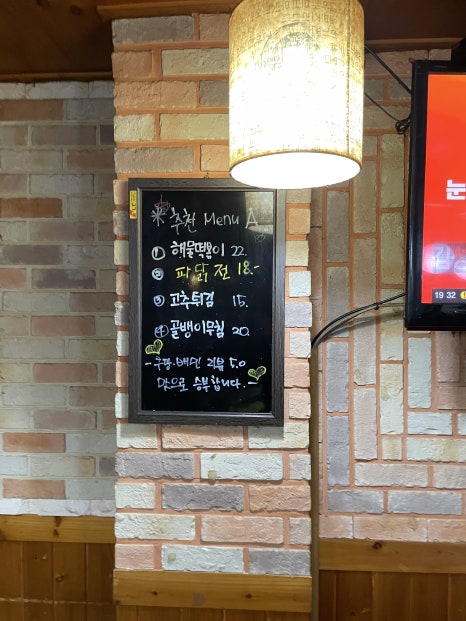 ※ 추천 Menu A
① 해물떡볶이 22.
② 파닭전 18.-
③ 고추튀김 15.
④ 골뱅이무침 20.
-쿠팡.배민 리뷰 5.0
맛으로 승부합니다.-
눈
19 32